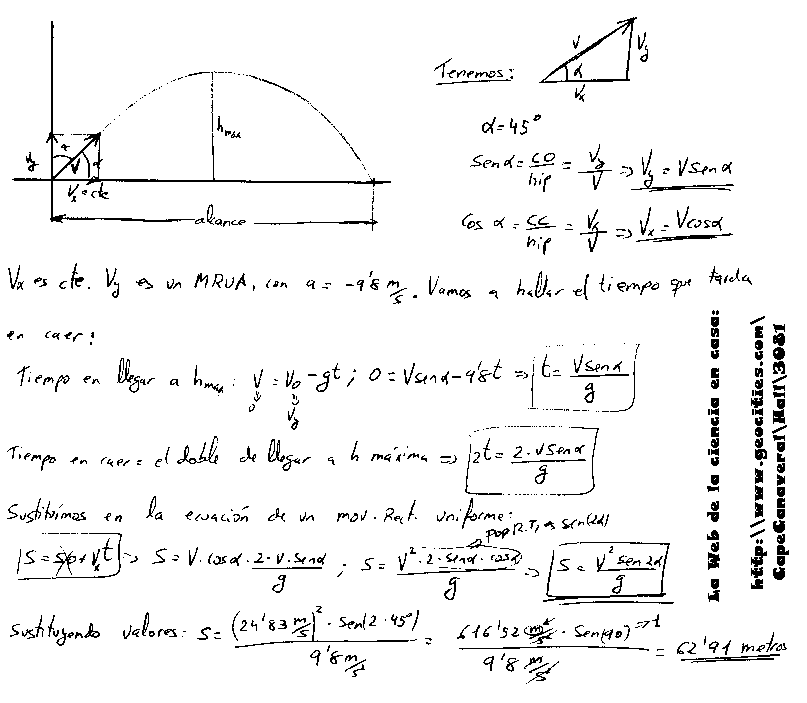 Tenemos:
V
Vy
α
Vx
hmax
Vy
α
V
α
Vx = cte
alcance
α = 45°
Sen α = CO/hip = Vy/V ⇒ Vy = V sen α
Cos α = CC/hip = Vx/V ⇒ Vx = V cos α
Vx es cte. Vy es un MRUA, con a = -9'8 m/s. Vamos a hallar el tiempo que tarda
en caer:
Tiempo en llegar a hmax: V = V0 - gt ; 0 = V sen α - 9'8t ⇒ t = V sen α/g
0
Vy
Tiempo en caer = el doble de llegar a h máxima ⇒ 2t = 2·V sen α/g
Sustituimos en la ecuación de un mov. Rect. uniforme:
por R.T. ⇒ Sen(2α)
S = S0 + Vx t ⇒ S = V·cos α · 2·V·sen α/g ; S = V²·2·sen α·cos α/g ⇒ S = V² sen 2α/g
Sustituyendo valores: S = (24'83 m/s)²·Sen(2·45°)/9'8 m/s² = 616'52 m²/s²·Sen(90) ⇒ 1/9'8 m/s² = 62'91 metros
La Web de la ciencia en casa:
http:\\www.geocities.com\
CapeCanaveral\Hall\3081